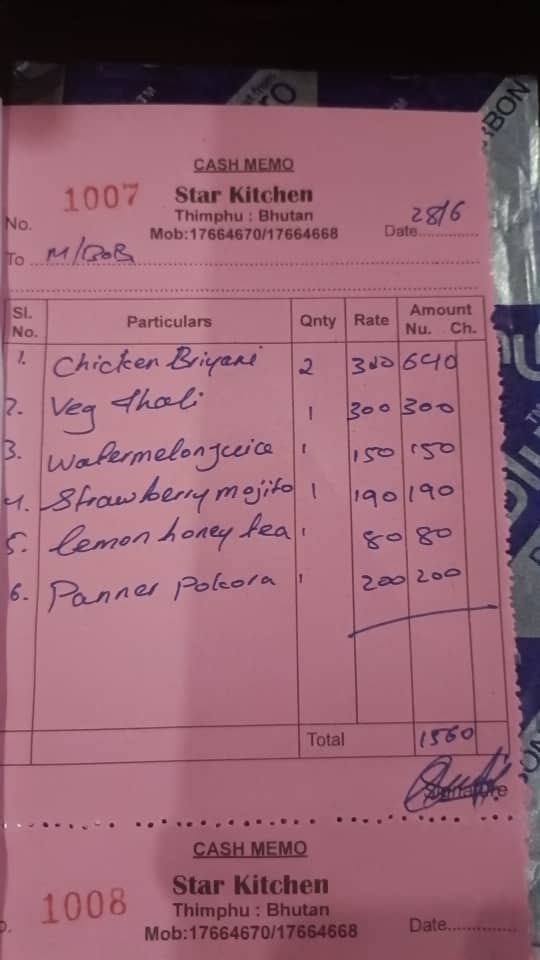 CASH MEMO
No. 1007 Star Kitchen
Thimphu : Bhutan
Mob:17664670/17664668
Date 28/6
To M/BOB
Sl. No. Particulars Qnty Rate Amount Nu. Ch.
1. Chicken Briyani 2 320 640
2. Veg thali 1 300 300
3. Watermelon juice 1 150 150
4. Strawberry mojito 1 190 190
5. lemon honey tea 1 80 80
6. Panner Pokora 1 200 200
Total 1560
Signature
CASH MEMO
1008 Star Kitchen
Thimphu : Bhutan
Mob:17664670/17664668
Date